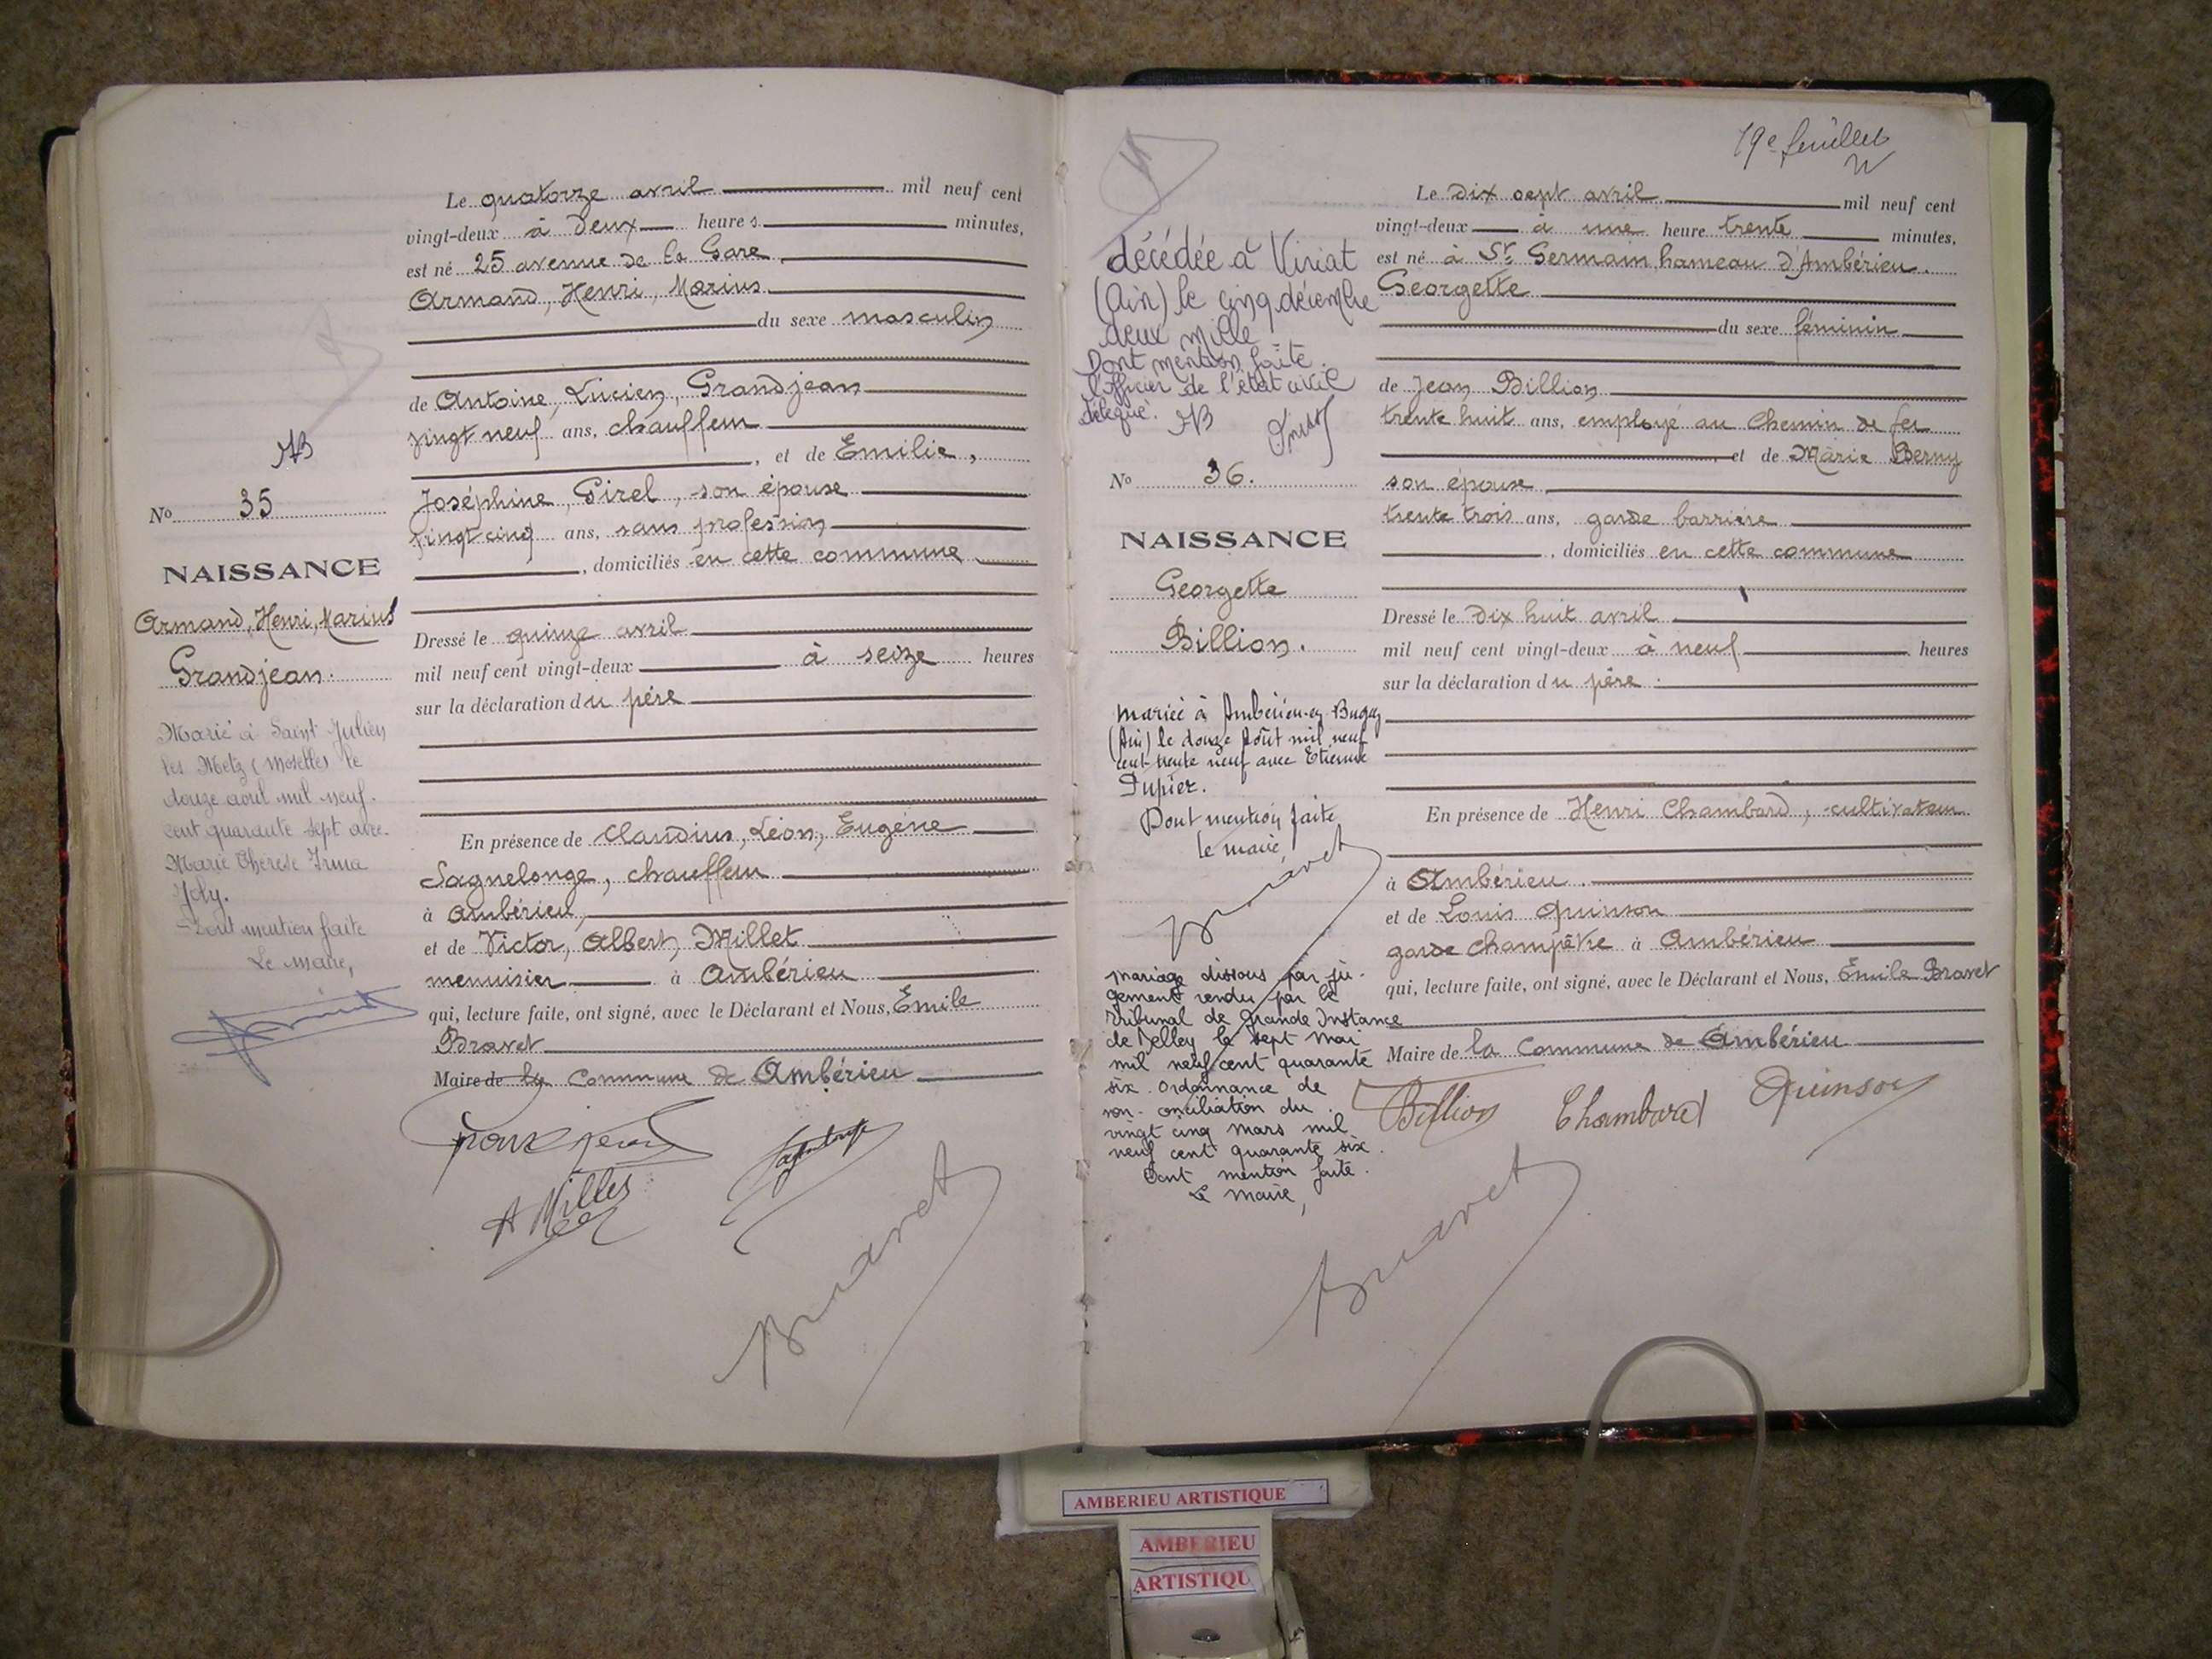 Le quatorze avril mil neuf cent
vingt-deux à deux heures minutes,
est né 25 avenue de la Gare
Armand, Henri, Marius
du sexe masculin
de Antoine, Lucien, Grandjean
vingt neuf ans, chauffeur
, et de Emilie,
Joséphine, Girel, son épouse
vingt cinq ans, sans profession
, domiciliés en cette commune
Dressé le quinze avril
mil neuf cent vingt-deux à seize heures
sur la déclaration du père
En présence de Claudius, Léon, Eugène
Sagnelonge, chauffeur
à Ambérieu,
et de Victor, Albert, Millet
menuisier à Ambérieu
qui, lecture faite, ont signé, avec le Déclarant et Nous, Emile
Bravet
Maire de la Commune de Ambérieu
A Millet
Bravet
AB
No 35
NAISSANCE
Armand, Henri, Marius
Grandjean.
Marié à Saint Julien
les Metz (Moselle) le
douze avril mil neuf
cent quarante sept avec
Marie Thérèse Irma
Joly.
Dont mention faite
Le Maire,
19e feuillet
décédée à Viriat
(Ain) le cinq décembre
deux mille
Dont mention faite.
l'officier de l'état civil
délégué. AB
No 36.
NAISSANCE
Georgette
Billion.
Mariée à Ambérieu-en-Bugey
(Ain) le douze Août mil neuf
cent trente neuf avec Etienne
Pupier.
Dont mention faite
le maire,
Bravet
Mariage dissous par ju-
gement rendu par le
Tribunal de Grande Instance
de Belley le sept Mai
mil neuf cent quarante
six. Ordonnance de
non-conciliation du
vingt cinq mars mil
neuf cent quarante six.
Dont mention faite.
Le Maire,
Le dix sept avril mil neuf cent
vingt-deux à une heure trente minutes,
est né à St Germain hameau d'Ambérieu.
Georgette
du sexe féminin
de Jean Billion
trente huit ans, employé au Chemin de fer
et de Marie Berny
son épouse
trente trois ans, garde barrière
, domiciliés en cette commune
Dressé le dix huit avril
mil neuf cent vingt-deux à neuf heures
sur la déclaration du père.
En présence de Henri Chambard, cultivateur
à Ambérieu.
et de Louis Quinson
garde champêtre à Ambérieu
qui, lecture faite, ont signé, avec le Déclarant et Nous, Emile Bravet
Maire de la Commune de Ambérieu
Billion Chambard Quinson
Bravet
AMBERIEU ARTISTIQUE
AMBERIEU
ARTISTIQU